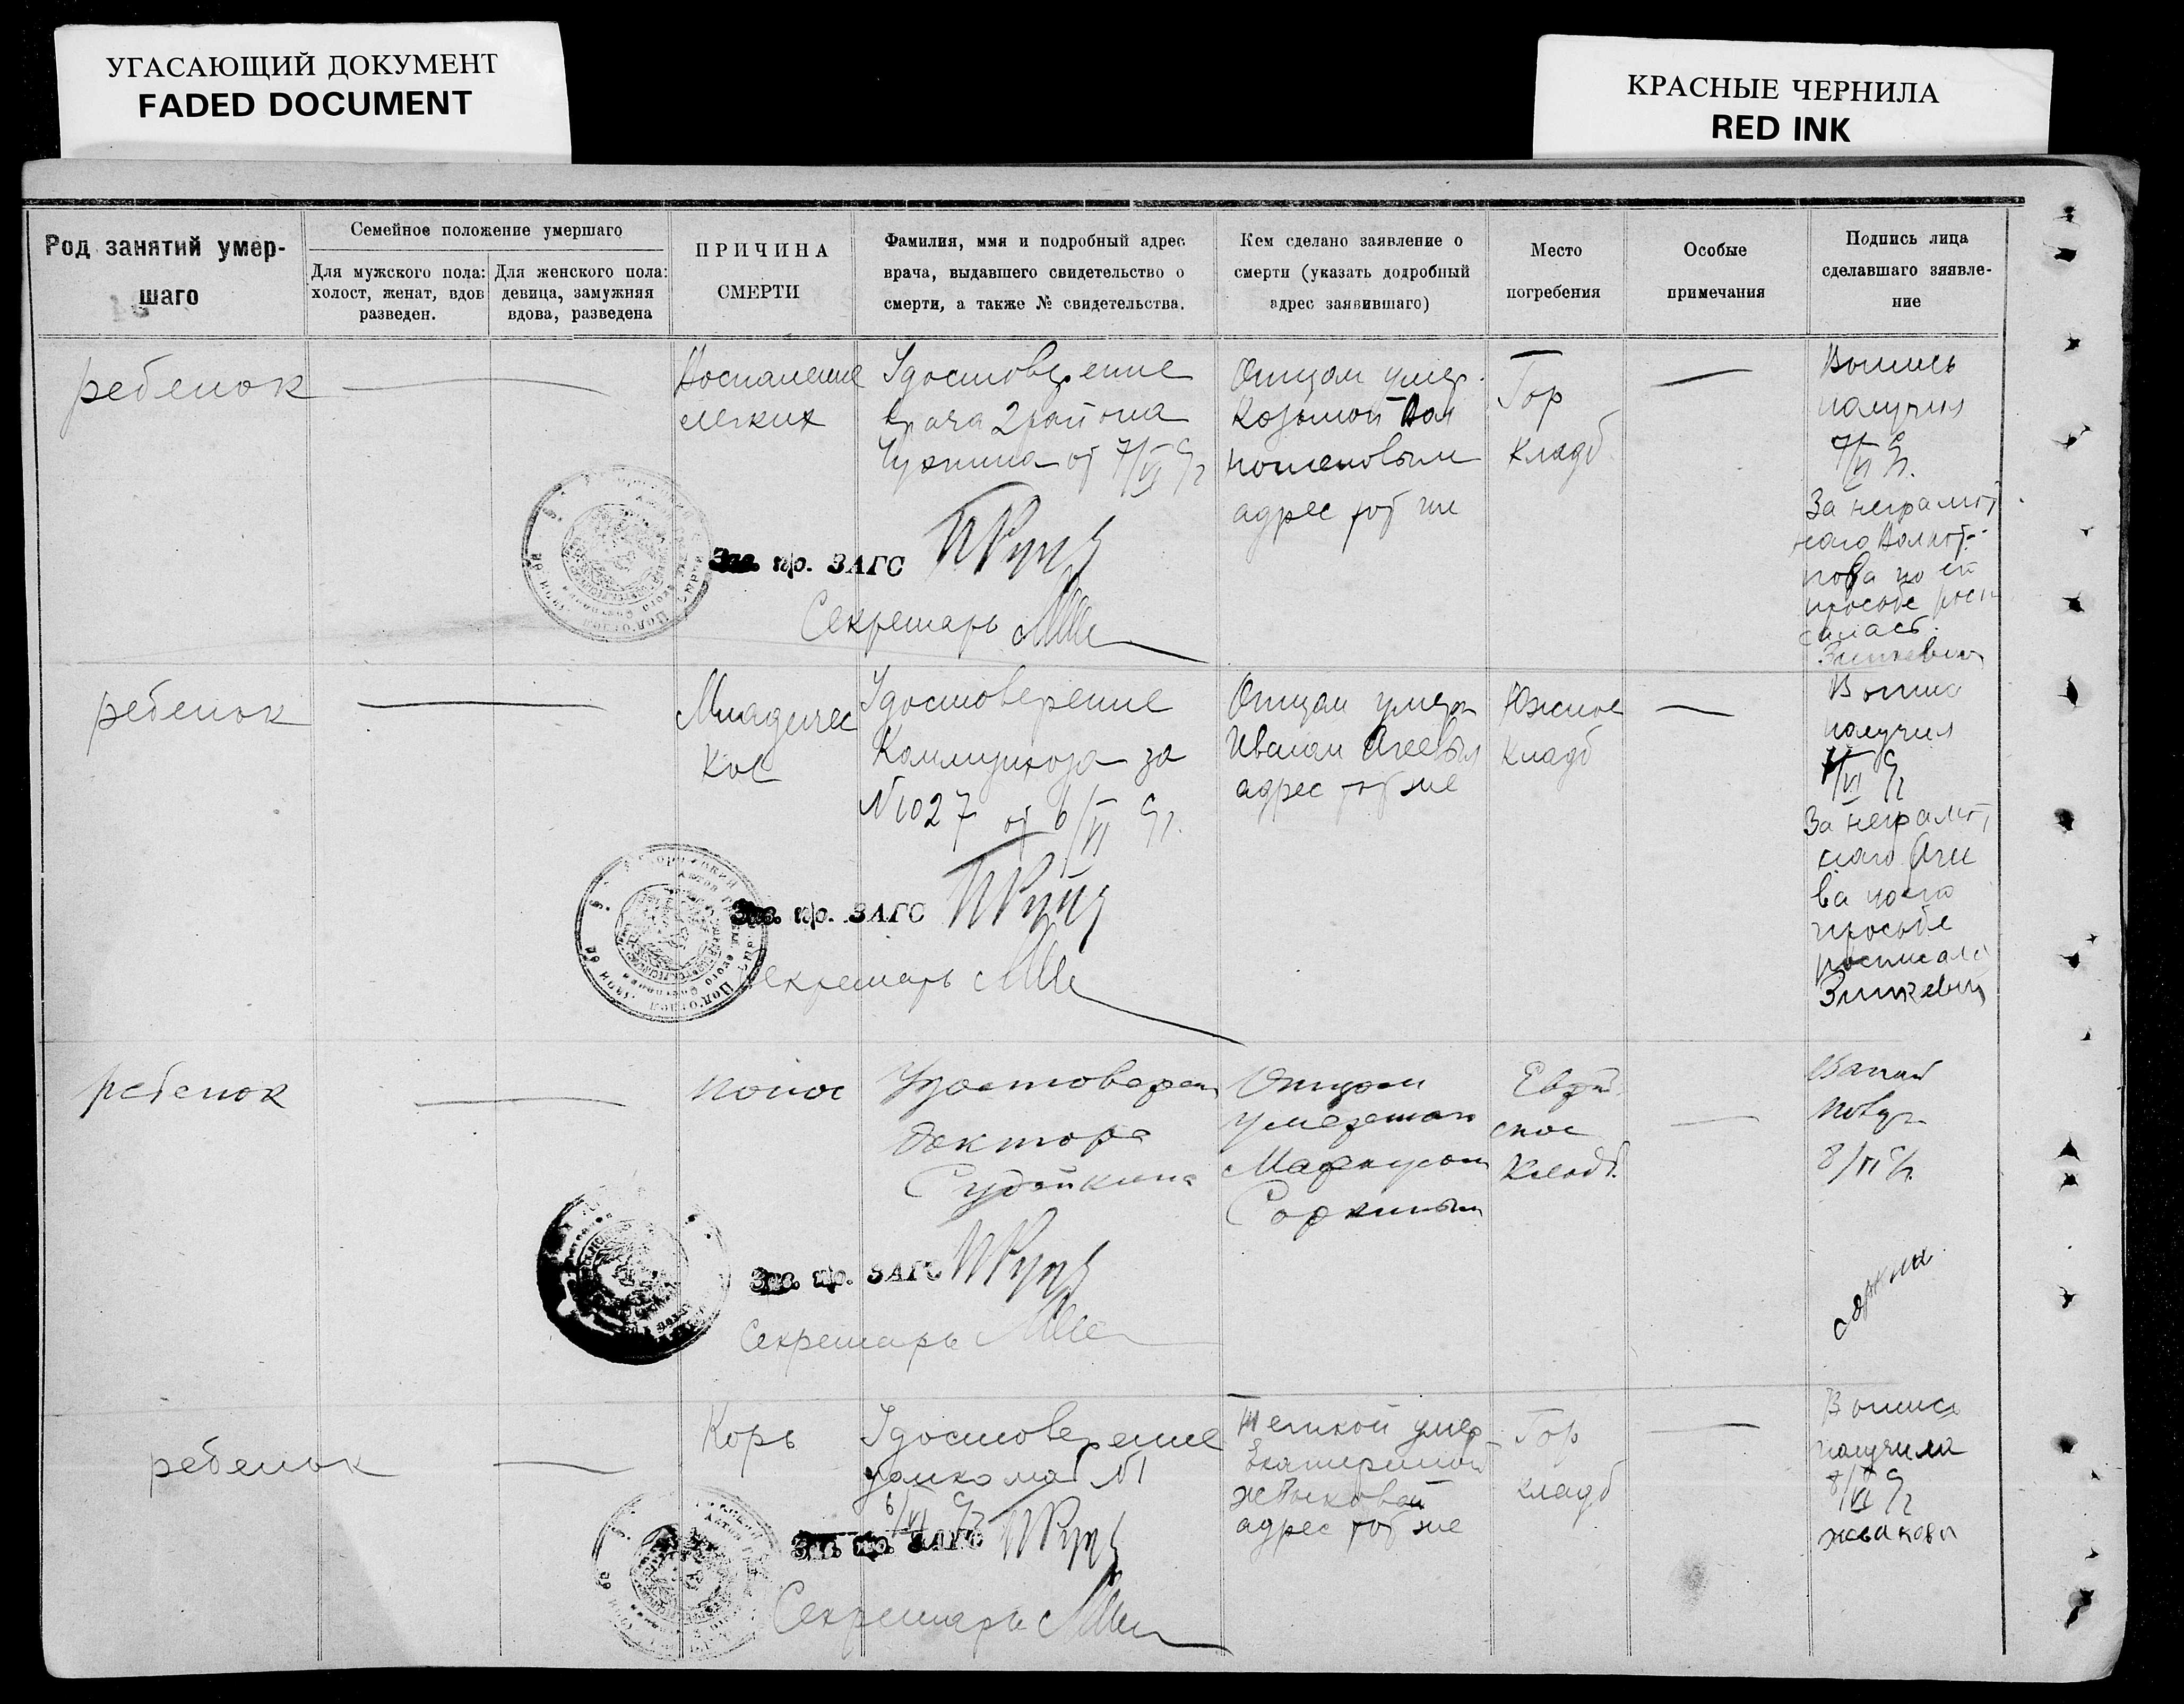 УГАСАЮЩИЙ ДОКУМЕНТ
FADED DOCUMENT
КРАСНЫЕ ЧЕРНИЛА
RED INK
Род занятий умер-
шаго
Семейное положение умершаго
Для мужского пола:
холост, женат, вдов
разведен.
Для женского пола:
девица, замужняя
вдова, разведена
ПРИЧИНА
СМЕРТИ
Фамилия, ммя и подробный адрес
врача, выдавшего свидетельство о
смерти, а также № свидетельства.
Кем сделано заявление о
смерти (указать додробный
адрес заявившаго)
Место
погребения
Особые
примечания
Подпись лица
сделавшаго зяявле-
ние
ребенок
Воспаление
легких
Удостоверение
врача 2 района
от 7/VI с/г
Отцом умер.
Козьмой
адрес тот же
Гор
кладб
Выпись
получил
7/VI с/г.
За неграмот
наго
по его
просьбе
Зинкевич
Зав. п/о. ЗАГС
Секретарь
ребенок
Младенчес
кое
Удостоверение
Коммунхоза за
№1027 от 6/VI с/г.
Отцом умер
Иваном Агеевым
адрес тот же
Южное
кладб
Выпись
получил
/VI с/г
За неграмот
наго Аге
ва по его
просьбе
росписалс
Зинкевич
Зав. п/о. ЗАГС
Секретарь
ребенок
понос
Удостоверен
доктора
Судейкина
Отцом
умершаго
Маркусом
Соркиным
Еврей
ское
кладб.
8/VI с/г.
Соркин
Зав. п/о. ЗАГС
Секретарь
ребенок
Корь
Удостоверение
домкома №1
6/VI с/г
Теткой умер
Екатериной
Жваковой
адрес тот же
Гор
кладб
Выпись
получила
8/VI с/г
Жвакова
Зав. п/о. ЗАГС
Секретарь